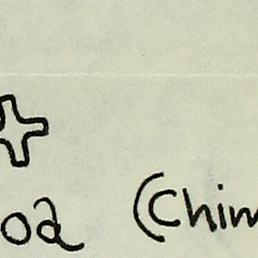 oa (Chim